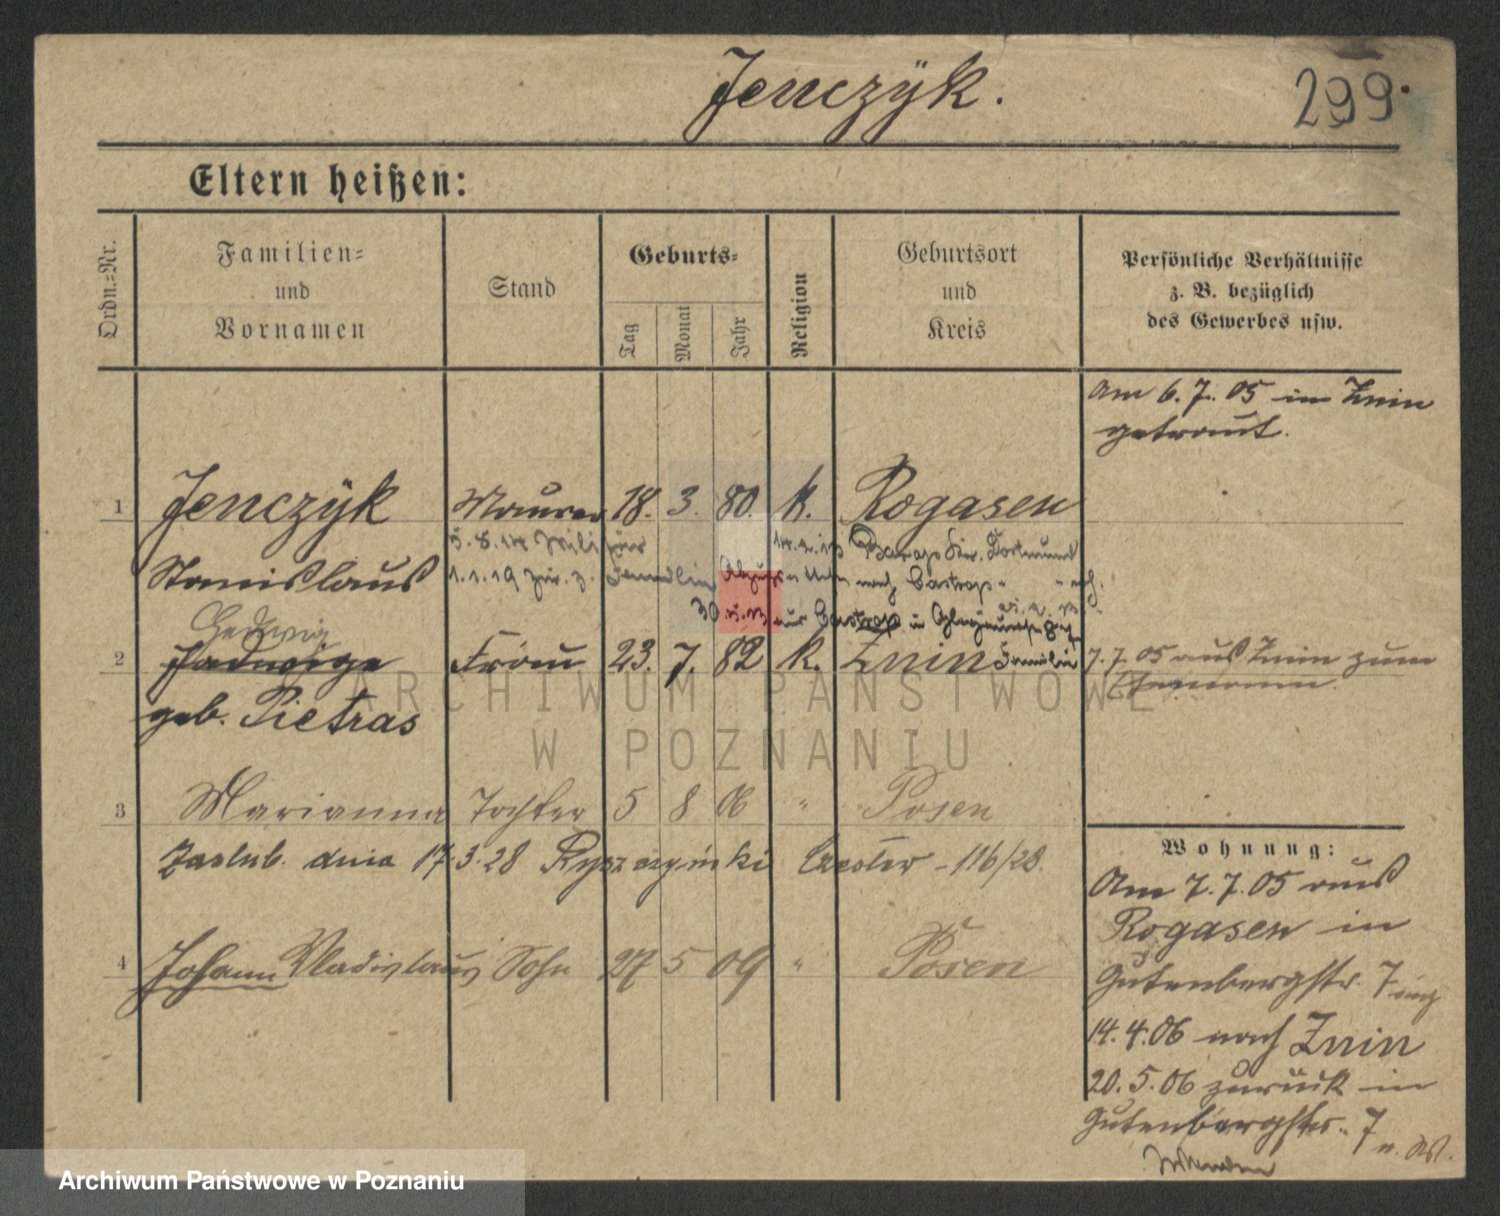 Jenczÿk.
299.
Eltern heißen:
Ordn.-Nr.
Familien-
und
Vornamen
Stand
Geburts-
Tag
Monat
Jahr
Religion
Geburtsort
und
Kreis
Persönliche Verhältnisse
z. B. bezüglich
des Gewerbes usw.
Am 6. 7. 05 in Znin
getraut.
1 Jenczÿk Maurer 18. 3. 80. k. Rogasen
5. 8. 14 Barop Kr. Dortmund
Stanislaus 1. 1. 19 zur. z. Familie nach Castrop
Hedwig
aus Castrop
2 Jadwiga Frau 23. 7. 82 k. Znin Familie 7. 7. 05 aus Znin zum
Ehemann.
geb. Pietras
ARCHIWUM PAŃSTWOWE
W POZNANIU
3 Marianna Tochter 5 8 06 " Posen
Zaślub. dnia 17.3.28 Ryszczyński Czesław - 116/28.
4 Johann Vladislaus Sohn 27 5 09 " Posen
Wohnung:
Am 7. 7. 05 aus
Rogasen in
Gutenbergstr. 7
14. 4. 06 nach Znin
20. 5. 06 zurück in
Gutenbergstr. 7
Archiwum Państwowe w Poznaniu